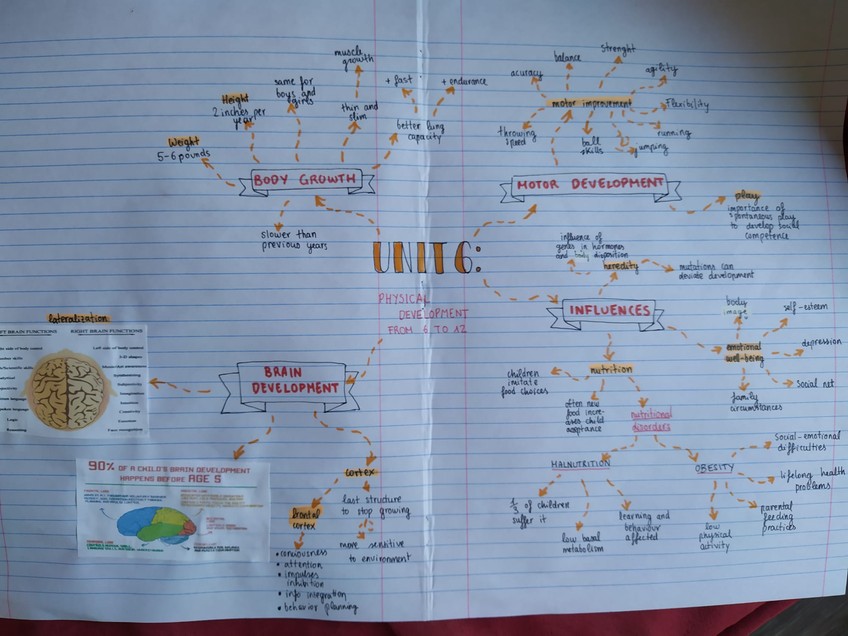 muscle
growth
same for
boys and
girls
Height
2 inches per
year
Weight
5-6 pounds
thin and
slim
+ fast
+ endurance
better lung
capacity
BODY GROWTH
slower than
previous years
acuracy
balance
strenght
agility
motor improvement
Flexibility
throwing
speed
ball
skills
jumping
running
MOTOR DEVELOPMENT
play
importance of
spontaneous play
to develop
competence
UNIT 6:
PHYSICAL
DEVELOPMENT
FROM 6 TO 12
influence of
genes in hormones
and body disposition
heredity
mutations can
deviate development
INFLUENCES
body
image
self-esteem
emotional
well-being
depression
social net
family
circumstances
nutrition
children
imitate
food choices
often new
food incre-
ases child
acceptance
nutritional
disorders
MALNUTRITION
1/3 of children
suffer it
low basal
metabolism
learning and
behaviour
affected
OBESITY
Social-emotional
difficulties
lifelong health
problems
parental
feeding
practices
low
physical
activity
lateralization
BRAIN FUNCTIONS
RIGHT BRAIN FUNCTIONS
BRAIN
DEVELOPMENT
90% OF A CHILD'S BRAIN DEVELOPMENT
HAPPENS BEFORE AGE 5
cortex
last structure
to stop growing
more sensitive
to environment
frontal
cortex
• conciusness
• attention
• impulses
inhibition
• info integration
• behavior planning